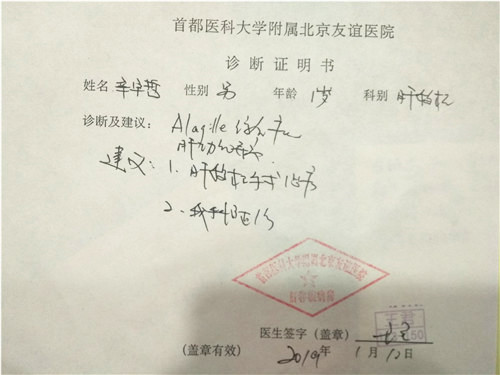 首都医科大学附属北京友谊医院
诊断证明书
姓名 辛宇哲 性别 男 年龄 1岁 科别 肝移植
诊断及建议: Alagille 综合征
肝功能
建议: 1. 肝移植手术治疗
2.
首都医科大学附属北京友谊医院
医生签字(盖章)
(盖章有效) 2019年1月12日